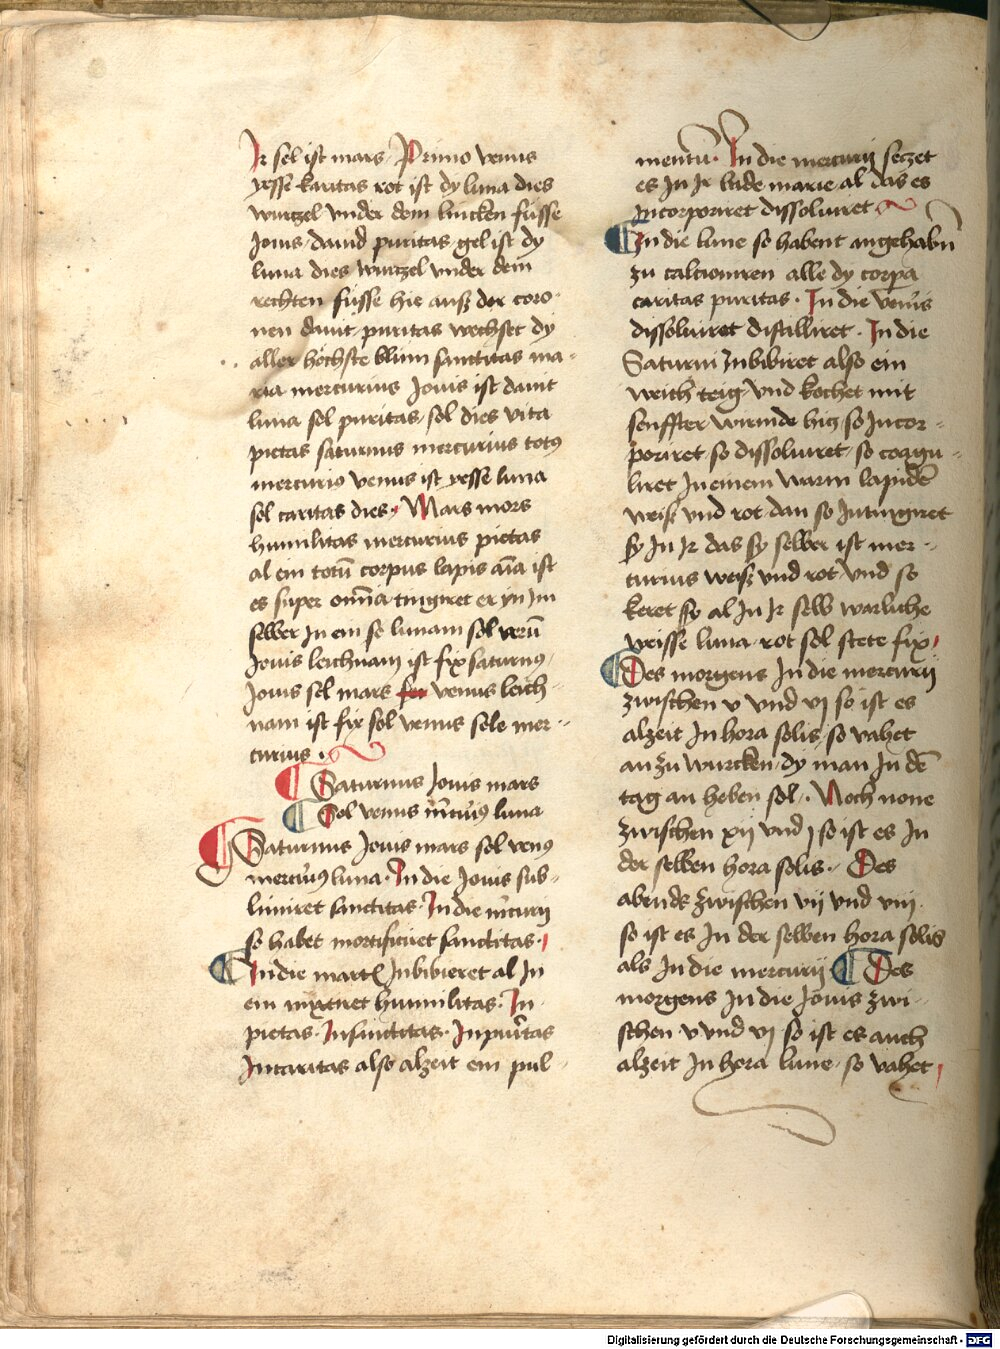 Ir sel ist mars Primo venus
yesse karitas rot ist dy luna dies
wurtzel vnder dem lincken fusse
Jouis dauid puritas gel ist dy
luna dies wurtzel vnder dem
rechten fusse hie ausz der coro
nen dauit puritas wechset dy
aller hochste blum sanctitas ma-
ria mercurius Jouis ist dauit
luna sol puritas sol dies vita
pietas saturnus mercurius totꝰ
mercuriꝰ venus ist yesse luna
sol caritas dies Mars mors
humilitas mercurius pietas
al ein totū corpus lapis aīa ist
es super om̄ia tingiret er yn Im
selber In ein so lunam sol verū
Jouis leichnam ist fix saturnꝰ
Jouis sol mars venus leich-
nam ist fix sol venus sole mer-
curius
Saturnus Jouis mars
Sol venus m̄curiꝰ luna
Saturnus Jouis mars sol venꝰ
mercuriꝰ luna In die Jouis sub-
limiret sanctitas In die m̄curij
so habet mortificiret sanctitas
In die mart( Inbibieret al In
ein mixtret humilitas In
pietas In sanctitas In puritas
In caritas also alzeit ein pul-
mentū In die mercurij seczet
es In Ir bade marie al das es
Incorporiret dissoluiret
In die lune so habent angehabn̄
zu calcioniren alle dy corpa
caritas puritas In die venꝰis
dissoluiret distilliret In die
Saturni Inbibiret also ein
weich teig vnd kochet mit
senffter wirmde bis so Incor-
poriret so dissoluiret so coagu-
liret In einem warm lapidē
weisz vnd rot dan so Intingiret
sy In Ir das sy selber ist mer-
curius weisz vnd rot vnd so
keret sy al In Ir selb warliche
weisse luna rot sol stete fix
Des morgens In die mercurij
zwischen v vnd vj so ist es
alzeit In hora solis so vahet
an zu wurcken dy man In dē
tag an heben sol Noch none
zwischen xij vnd j so ist es In
der selben hora solis Des
abends zwischen vij vnd viij
so ist es In der selben hora solis
als In die mercurij Des
morgens In die Jouis zwi-
schen v vnd vj so ist es auch
alzeit In hora lune so vahet
Digitalisierung gefördert durch die Deutsche Forschungsgemeinschaft - DFG